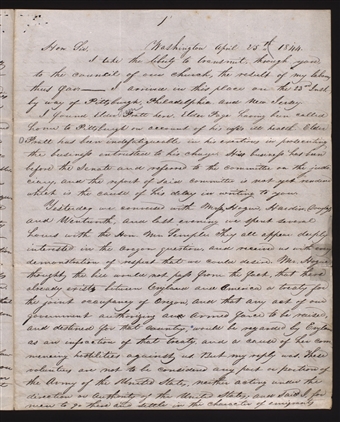 1
Hon. Sir. Washington April 25th 1844.
I take the liberty to transmit, through you
to the council of our church, the result of my labors
thus far— I arrived in this place on the 23d Inst
by way of Pittsburgh, Philadelphia and New Jersey.
I found Elder Pratt here, Elder Page having been called
home to Pittsburgh on account of his wife's ill health. Elder
Pratt has been indefatigable in his exertions in prosecuting
the business entrusted to his charge. His business has been
before the Senate and referred to the Committee on the judi-
ciary, and the report of said committee is not yet rendered
which is the cause of his delay in writing to you.
Yesterday we conversed with Messrs Hoge, Hardin,
and Wentworth, and last evening we spent several
hours with the Hon. Mr. Semple. They all appear deeply
interested in the Oregon question, and receive us with every
demonstration of respect that we could desire. Mr. Hoge
thought the bill would not pass from the fact, that there
already exists between England and America a treaty for
the joint occupancy of Oregon, and that any act of our
government authorizing an armed force to be raised,
and destined for that country, would be regarded by England
as an infraction of that treaty, and a cause of her com-
mencing hostilities against us. But my reply was these
volunteers are not to be considered any part or portion of
the Army of the United States, neither acting under the
direction or authority of the United States; and said I, for
men to go there and settle in the character of emigrants